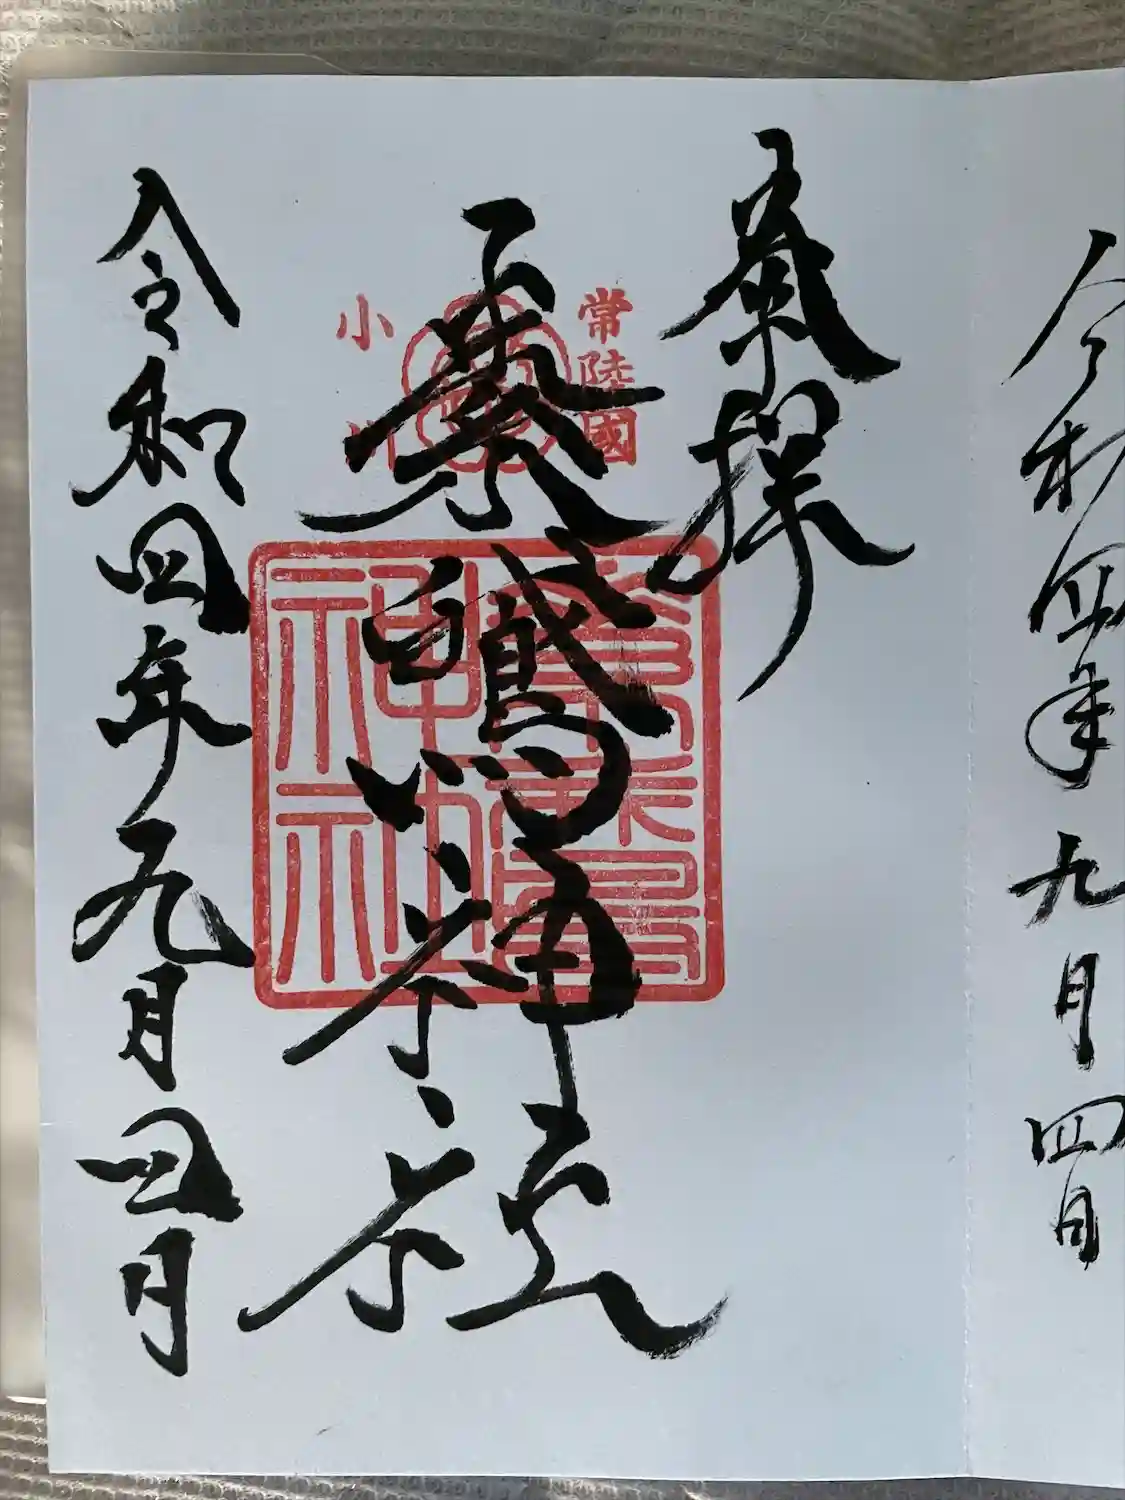 令和四年九月四日
奉拝
常陸國
素鵞神社
小川
素鵞
神社
令和四年九月四日